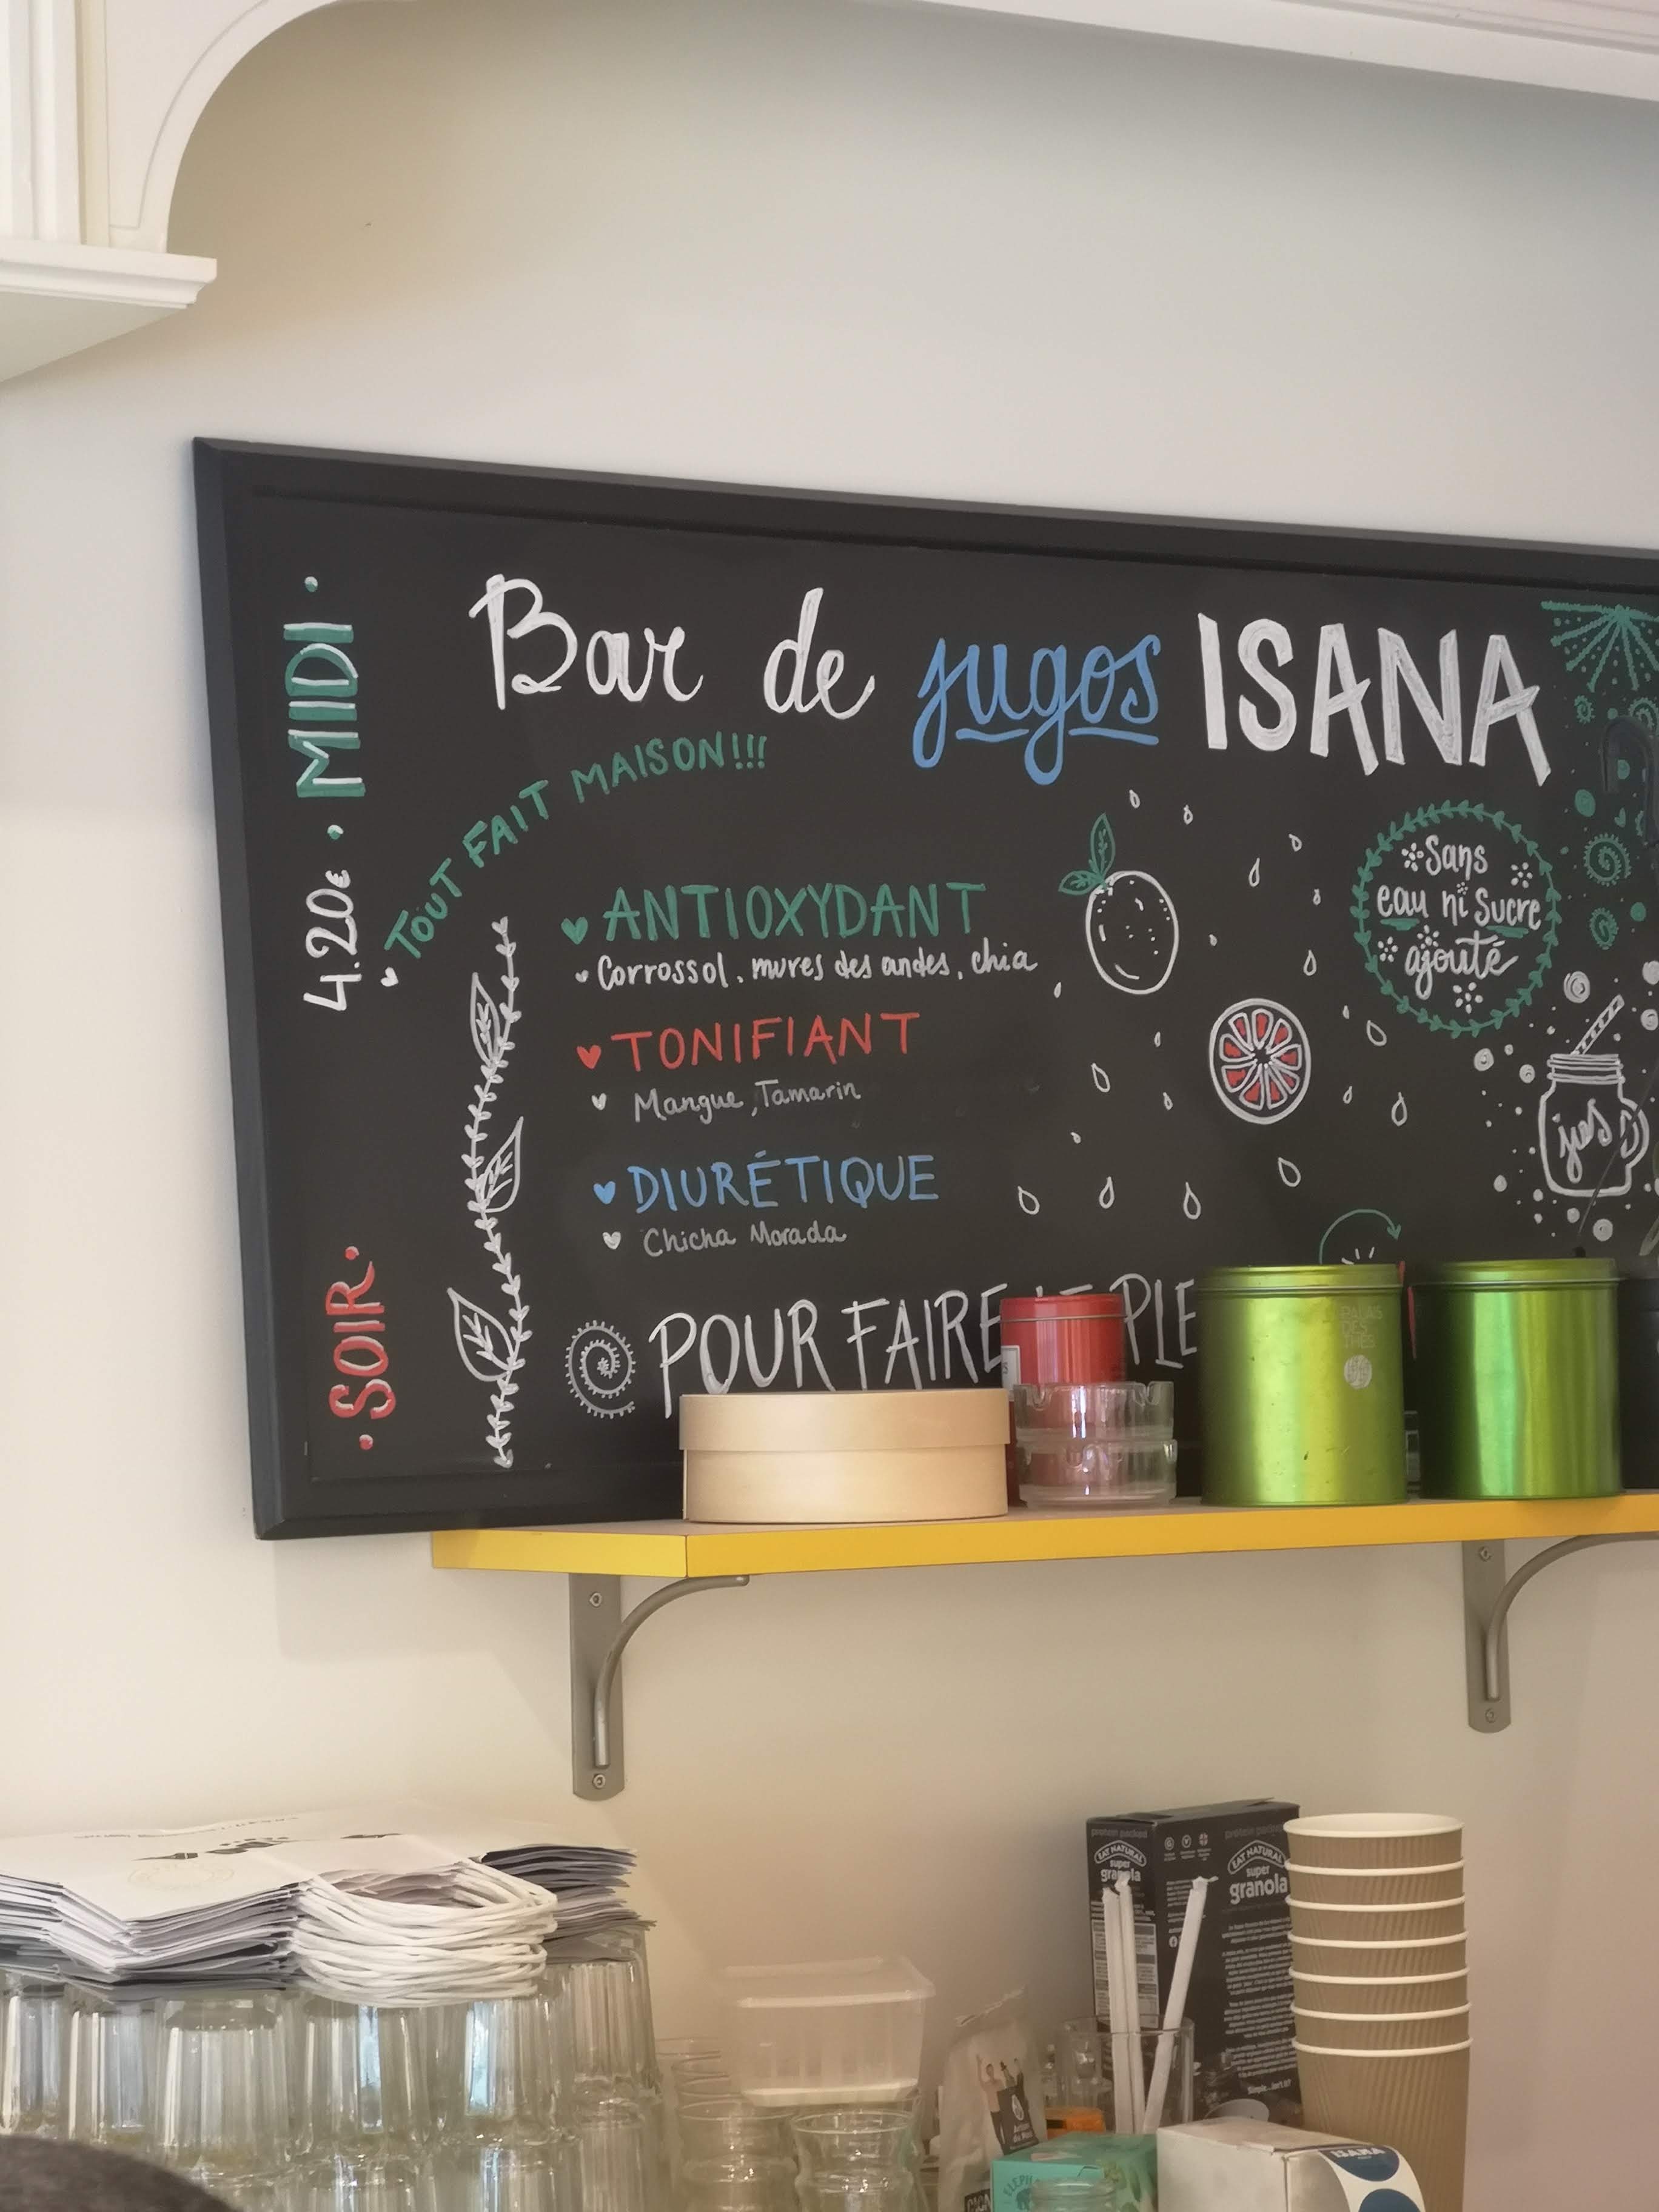 Bar de jugos ISANA
• MIDI •
4.20€
• SOIR •
TOUT FAIT MAISON!!!
ANTIOXYDANT
Corrossol, mures des andes, chia
TONIFIANT
Mangue, Tamarin
DIURÉTIQUE
Chicha Morada
POUR FAIRE LE PLE
Sans
eau ni sucre
ajouté
jus
PALAIS
DES
THÉS
protein packed
EAT NATURAL
super
granola
protein packed
EAT NATURAL
super
granola
Simple...isn't it?
ISANA